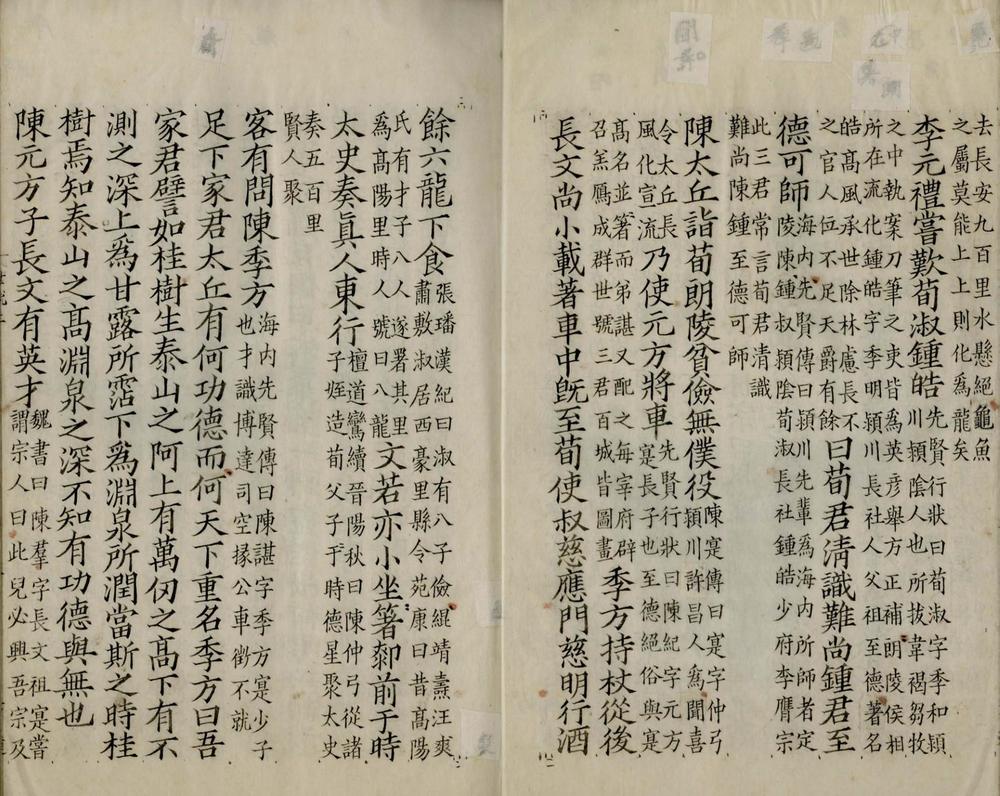 去長安九百里水懸絕龜魚
之屬莫能上上則化為龍矣
李元禮嘗歎荀淑鍾皓
先賢行狀曰荀淑字季和穎
川穎陰人也所拔韋褐芻牧
之中執案刀筆之吏皆為英彥舉方正補朗陵侯相
所在流化鍾皓字季明穎川長社人父祖至德著名
皓高風承世除林慮長不
之官人位不足天爵有餘
曰荀君清識難尚鍾君至
德可師
海內先賢傳曰穎川先輩為海內所師者定
陵陳鍾叔穎陰荀淑長社鍾皓少府李膺宗
此三君常言荀君清識
難尚陳鍾至德可師
陳太丘詣荀朗陵貧儉無僕役
陳寔傳曰寔字仲弓
穎川許昌人為聞喜
令太丘長
風化宣流
乃使元方將車
先賢行狀曰陳紀字元方
寔長子也至德絕俗與寔
高名並著而弟諶又配之每宰府辟
召羔鴈成群世號三君百城皆圖畫
季方持杖從後
長文尚小載著車中旣至荀使叔慈應門慈明行酒
餘六龍下食
張璠漢紀曰淑有八子儉緄靖燾汪爽
肅敷淑居西豪里縣令苑康曰昔高陽
氏有才子八人遂署其里
為高陽里時人號曰八龍
文若亦小坐箸䣛前于時
太史奏真人東行
檀道鸞續晉陽秋曰陳仲弓從諸
子姪造荀父子于時德星聚太史
奏五百里
賢人聚
客有問陳季方
海內先賢傳曰陳諶字季方寔少子
也才識博達司空掾公車徵不就
足下家君太丘有何功德而何天下重名季方曰吾
家君譬如桂樹生泰山之阿上有萬仞之高下有不
測之深上為甘露所霑下為淵泉所潤當斯之時桂
樹焉知泰山之高淵泉之深不知有功德與無也
陳元方子長文有英才
魏書曰陳羣字長文祖寔嘗
謂宗人曰此兒必興吾宗及